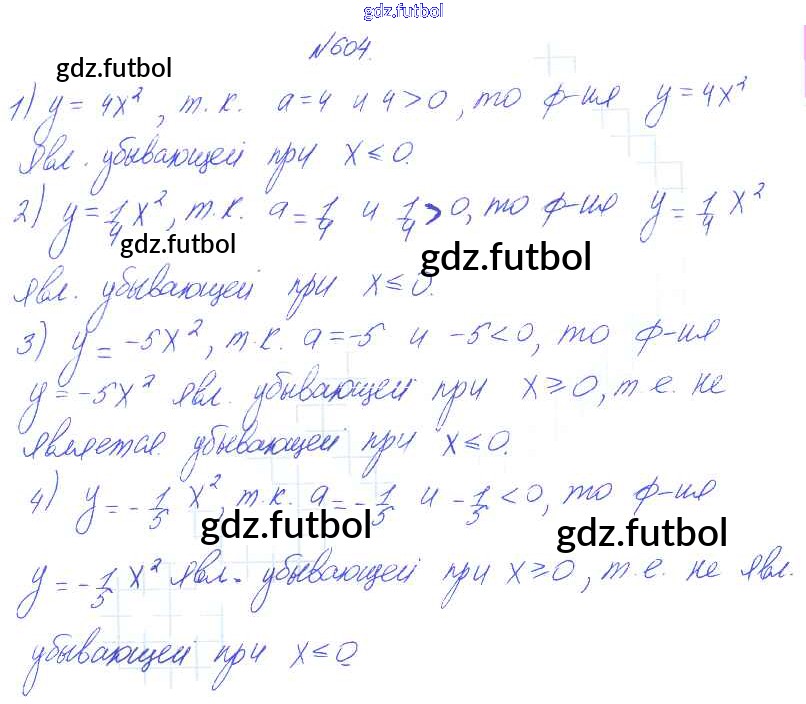 gdz.futbol
№604.
gdz.futbol
1) y = 4x², т.к. a=4 и 4>0, то ф-ия y=4x²
явл. убывающей при x ≤ 0.
2) y = 1/4 x², т.к. a = 1/4 и 1/4 > 0, то ф-ия y = 1/4 x²
gdz.futbol
gdz.futbol
явл. убывающей при x ≤ 0.
3) y = -5x², т.к. a = -5 и -5<0, то ф-ия
y = -5x² явл. убывающей при x ≥ 0, т.е. не
является убывающей при x ≤ 0.
4) y = -1/5 x², т.к. a = -1/5 и -1/5 < 0, то ф-ия
gdz.futbol
gdz.futbol
y = -1/5 x² явл. убывающей при x ≥ 0, т.е. не явл.
убывающей при x ≤ 0